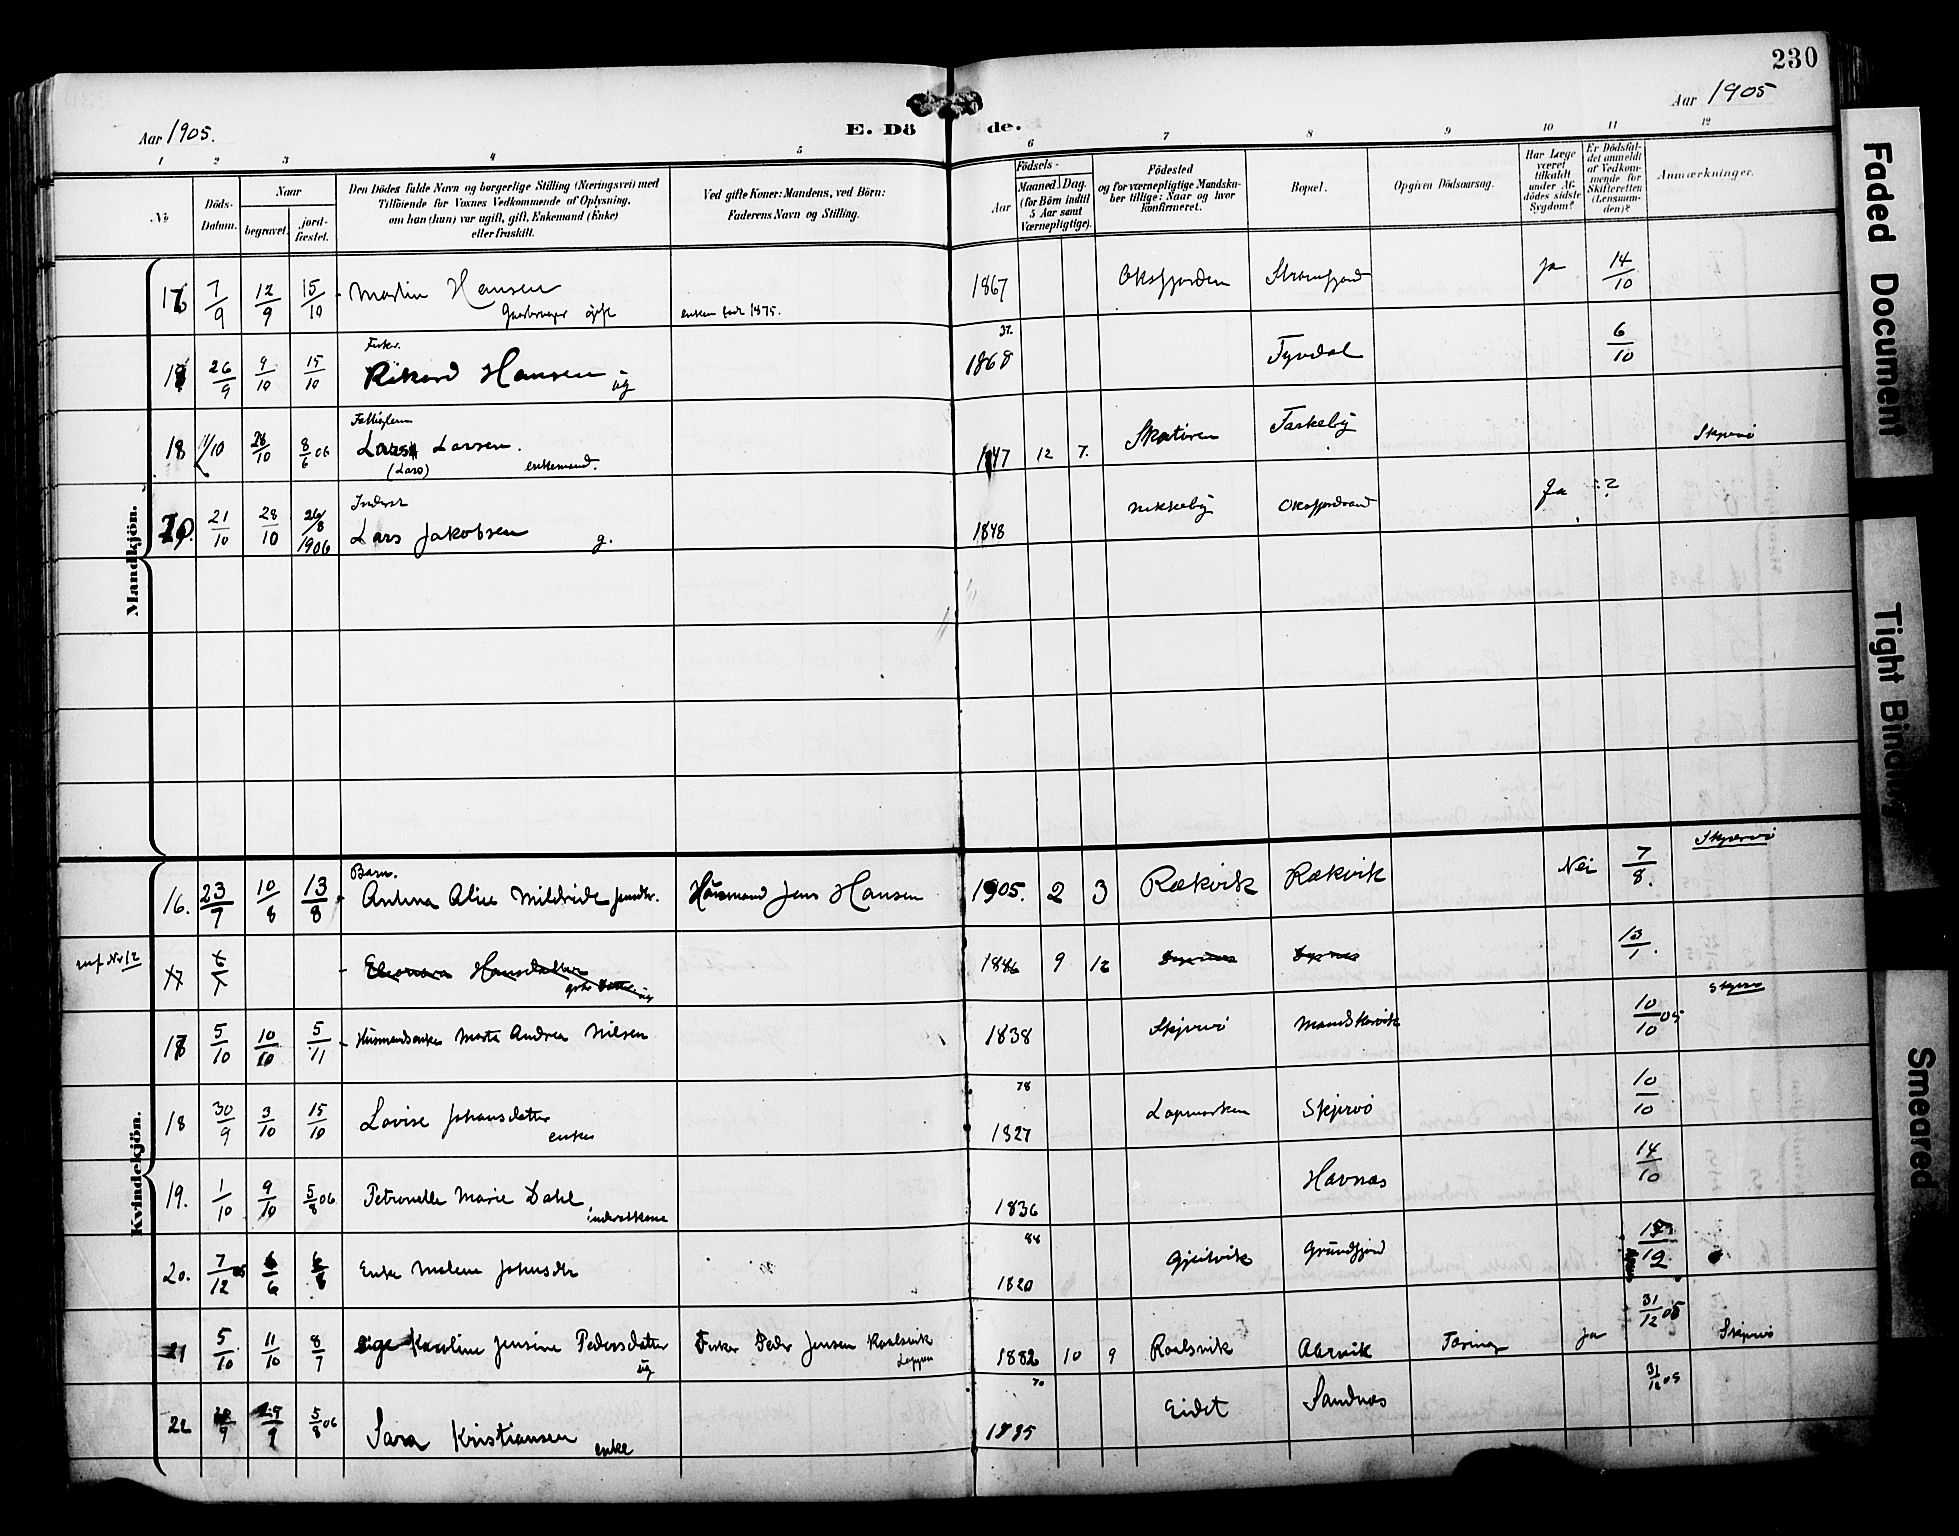 230
Aar 1905.
E. Dö
de.
Aar 1905
1 2 3 4 5 6 7 8 9 10 11 12
No
Döds-Datum.
Naar
begravet.
jord-fæstet.
Den Dödes fulde Navn og borgerlige Stilling (Næringsvei) med
Tilföiende for Voxnes Vedkommende af Oplysning,
om han (hun) var ugift, gift, Enkemand (Enke)
eller fraskilt.
Ved gifte Koner: Mandens, ved Börn:
Faderens Navn og Stilling.
Födsels-
Aar
Maaned. Dag.
(for Börn indtil
5 Aar samt
Værnepligtige).
Födested
og for værnepligtige Mandska-
ber tillige: Naar og hvor
konfirmeret.
Bopæl.
Opgiven Dödsaarsag.
Har Læge
været
tilkaldt
under Af-
dödes sidste
Sygdom?
Er Dödsfal-
det anmeldt
af Vedkom-
mende for
Skifteretten
(Lensman-
den)?
Anmærkninger.
Mandkjön.
7/9 12/9 15/10 Martin Hansen gift enken født 1875. 1867 Oksfjorden Straumfjord Ja 14/10
26/9 9/10 15/10 Fisker. Rikard Hansen ug 37. 1868 6/10
18 11/10 26/10 8/6 06 Lars Larsen. (Lars) enkemand. 12 7. Taskeby Skjervö
21/10 28/10 26/8 1906 Inderst Lars Jakobsen g. 1848 Nikkeby Ja ?
Kvindekjön.
16. 23/7 10/8 13/8 Barn. Antina Alise Mildride Jensdtr. Husmand Jens Hansen 1905. 2 3 Rækvik Rækvik Nei 7/8. Skjervö
Eleonora Hansdatter 1886 9 12
5/10 10/10 5/11 Husmandsenke Marta Andrea Nilsen 1838 Skjervö Mandskarvik 10/10 05 Skjervö
18 30/9 3/10 15/10 Lovise Johansdatter enke 78 1827 Skjervö 10/10
19. 1/10 9/10 5/8 06 Petronelle Marie Dahl inderstkone 1836 Havnæs 14/10
20. 7/12 05 6/6 6/8 Enke Malene Johnsdtr 84 1820 Grundfjord
21 5/10 11/10 8/7 Pige Karoline Jensine Pedersdatter ug Fisker Peder Jensen Roalsvik Loppen 1882 10 9 Roalsvik Tæring Ja 31/12 05 Skjervö
22 5/8 06 Sara Kristiansen enke 70 Eidet Sandnæs 31/12 05
Faded Document
Tight Binding
Smeared